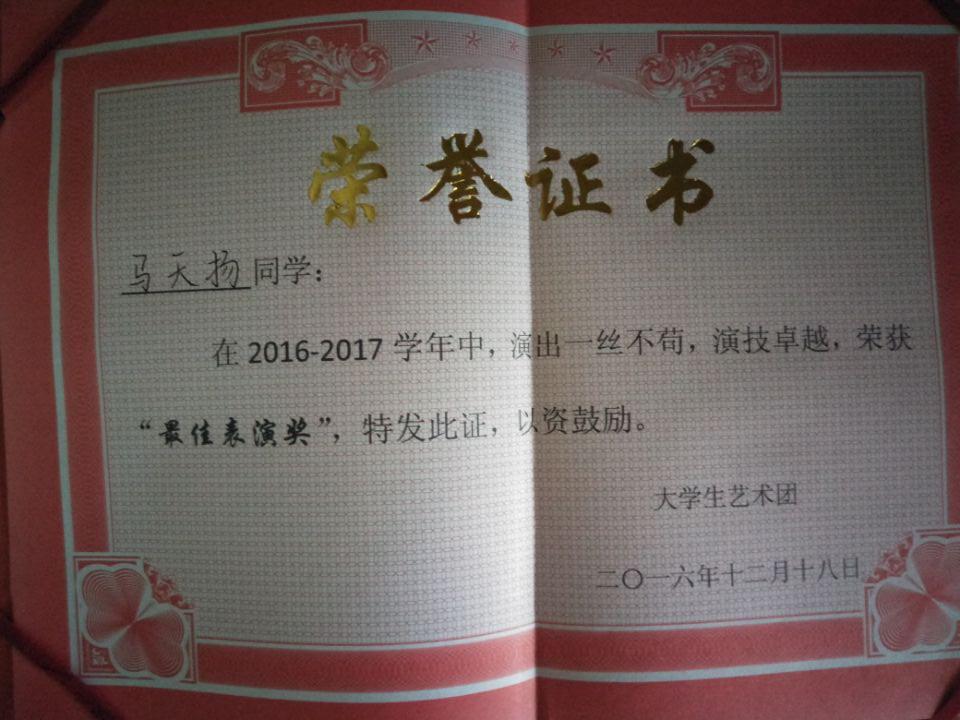 荣誉证书
马天扬同学：
在 2016-2017 学年中，演出一丝不苟，演技卓越，荣获
“最佳表演奖”，特发此证，以资鼓励。
大学生艺术团
二〇一六年十二月十八日